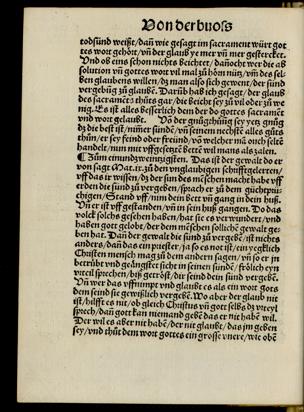 Von der buoß
todsünd weißt/ dañ wie gesagt im sacrament würt got
tes wort gehört/ vñ der glaub ye mer vñ mer gesterckt.
Vnd ob eins schon nichts beichtet/ dañocht wer die ab
solution vñ gottes wort vil mal zů hörn nütz/ vñ des sel-
ben glaubens willen/ dz man also sich gewent/ der sünd
vergebūg zů glaubē. Darūb hab ich gesagt/ der glaub
des sacramēts thůts gar/ die beicht sey zů vil oder zů we
nig. Es ist alles besserlich dem der do gottes sacramēt
vnd wort gelaubt. Vō der gnůgthůūg sey yetz gnůg
dz die best ist/ nim̄er sünde/ vñ seinem nechstē alles gůts
thůn/ er sey feind oder freund/ vō welcher mā ouch seltē
handelt/ nun mit vffgesetzē bettē wil mans als zalen.
¶ Zům einundzweintzigstē. Das ist der gewalt do er
von sagt Mat. ix. zů den vnglaubigen schrifftgelertten/
vff das ir wissen/ dz der sun des mēschen macht habe vff
erden die sünd zů vergeben/ sprach er zů dem güchtprü-
chigen/ Stand vff/ nim dein bett vñ gang in dein huß.
Vñ er ist vff gestanden/ vñ in sein huß gangen. Do das
volck solchs gesehen haben/ hat sie es verwundert/ vnd
haben gott gelobt/ der dem mēschen sollichē gewalt ge-
ben hat. Dañ der gewalt die sünd zů vergebē/ ist nichts
anders/ dañ das ein priester/ ja so es not ist/ ein yeglich
Christen mensch mag zů dem andern sagen/ vñ so er jn
betrübt vnd geängstet sicht in seinen sünde/ frölich eyn
vrteil sprechen/ biß getröst/ dir seind dein sünd vergebē.
Vñ wer das vffnimpt vnd glaubt es als ein wort gots
dem seind sie gewißlich vergebē. Wo aber der glaub nit
ist/ hilfft es nit/ ob gleich Christus vñ gott selbs dz vrteyl
sprech/ dañ gott kan niemand gebē das er nit habē wil.
Der wil es aber nit habē/ der nit glaubt/ das jm geben
sey/ vnd thůt dem wort gottes ein grosse vnere/ wie obē